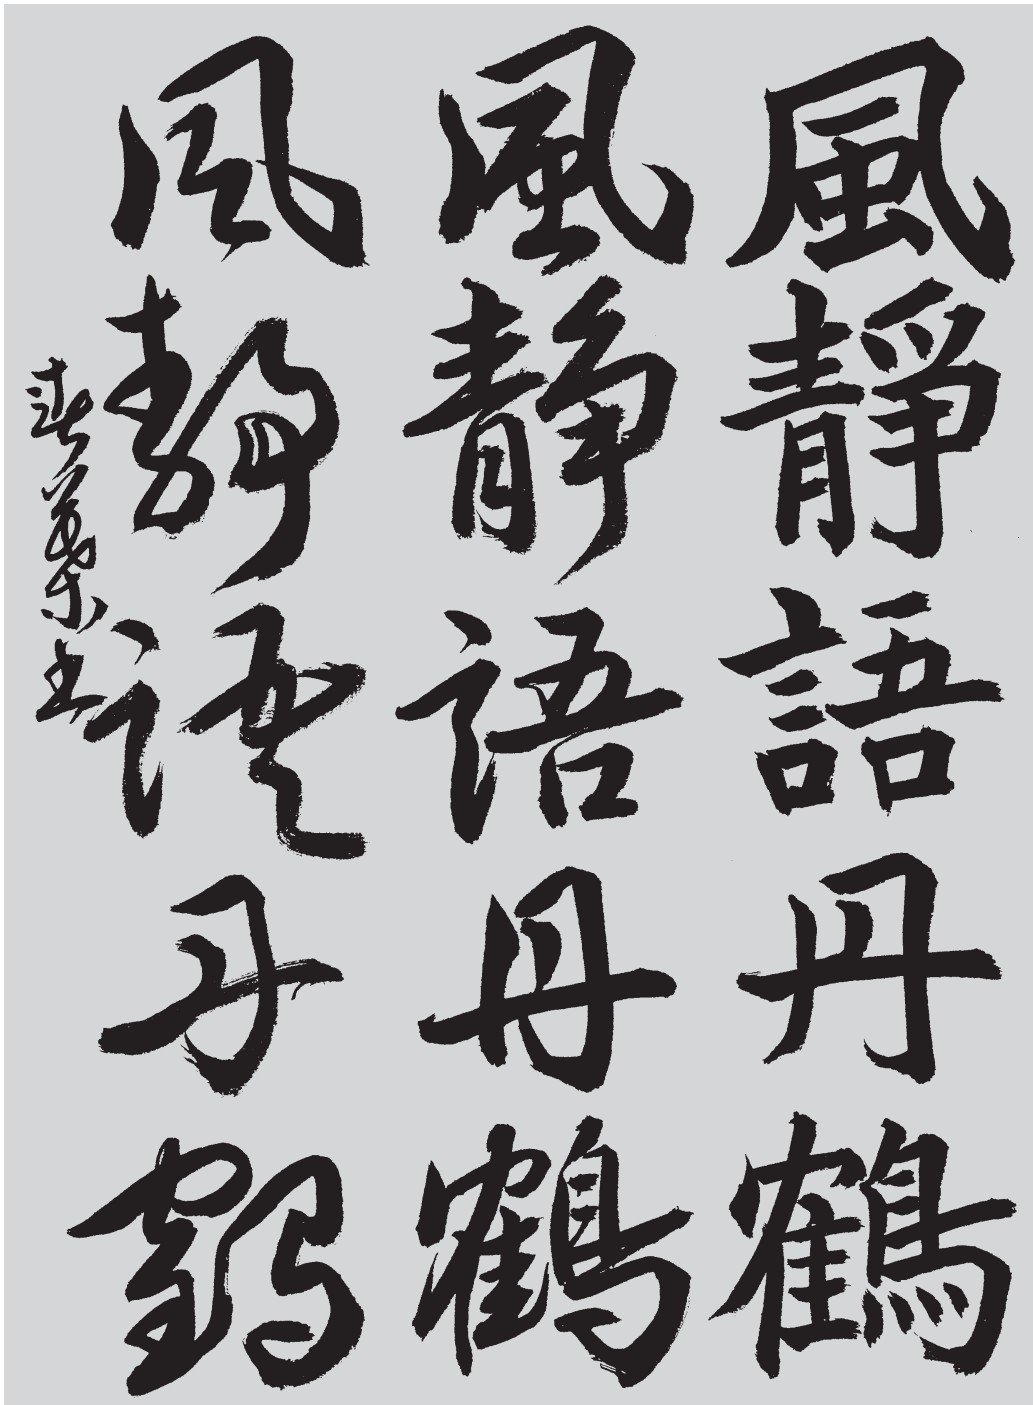 風靜語丹鶴
風静語丹鶴
風静語丹鶴